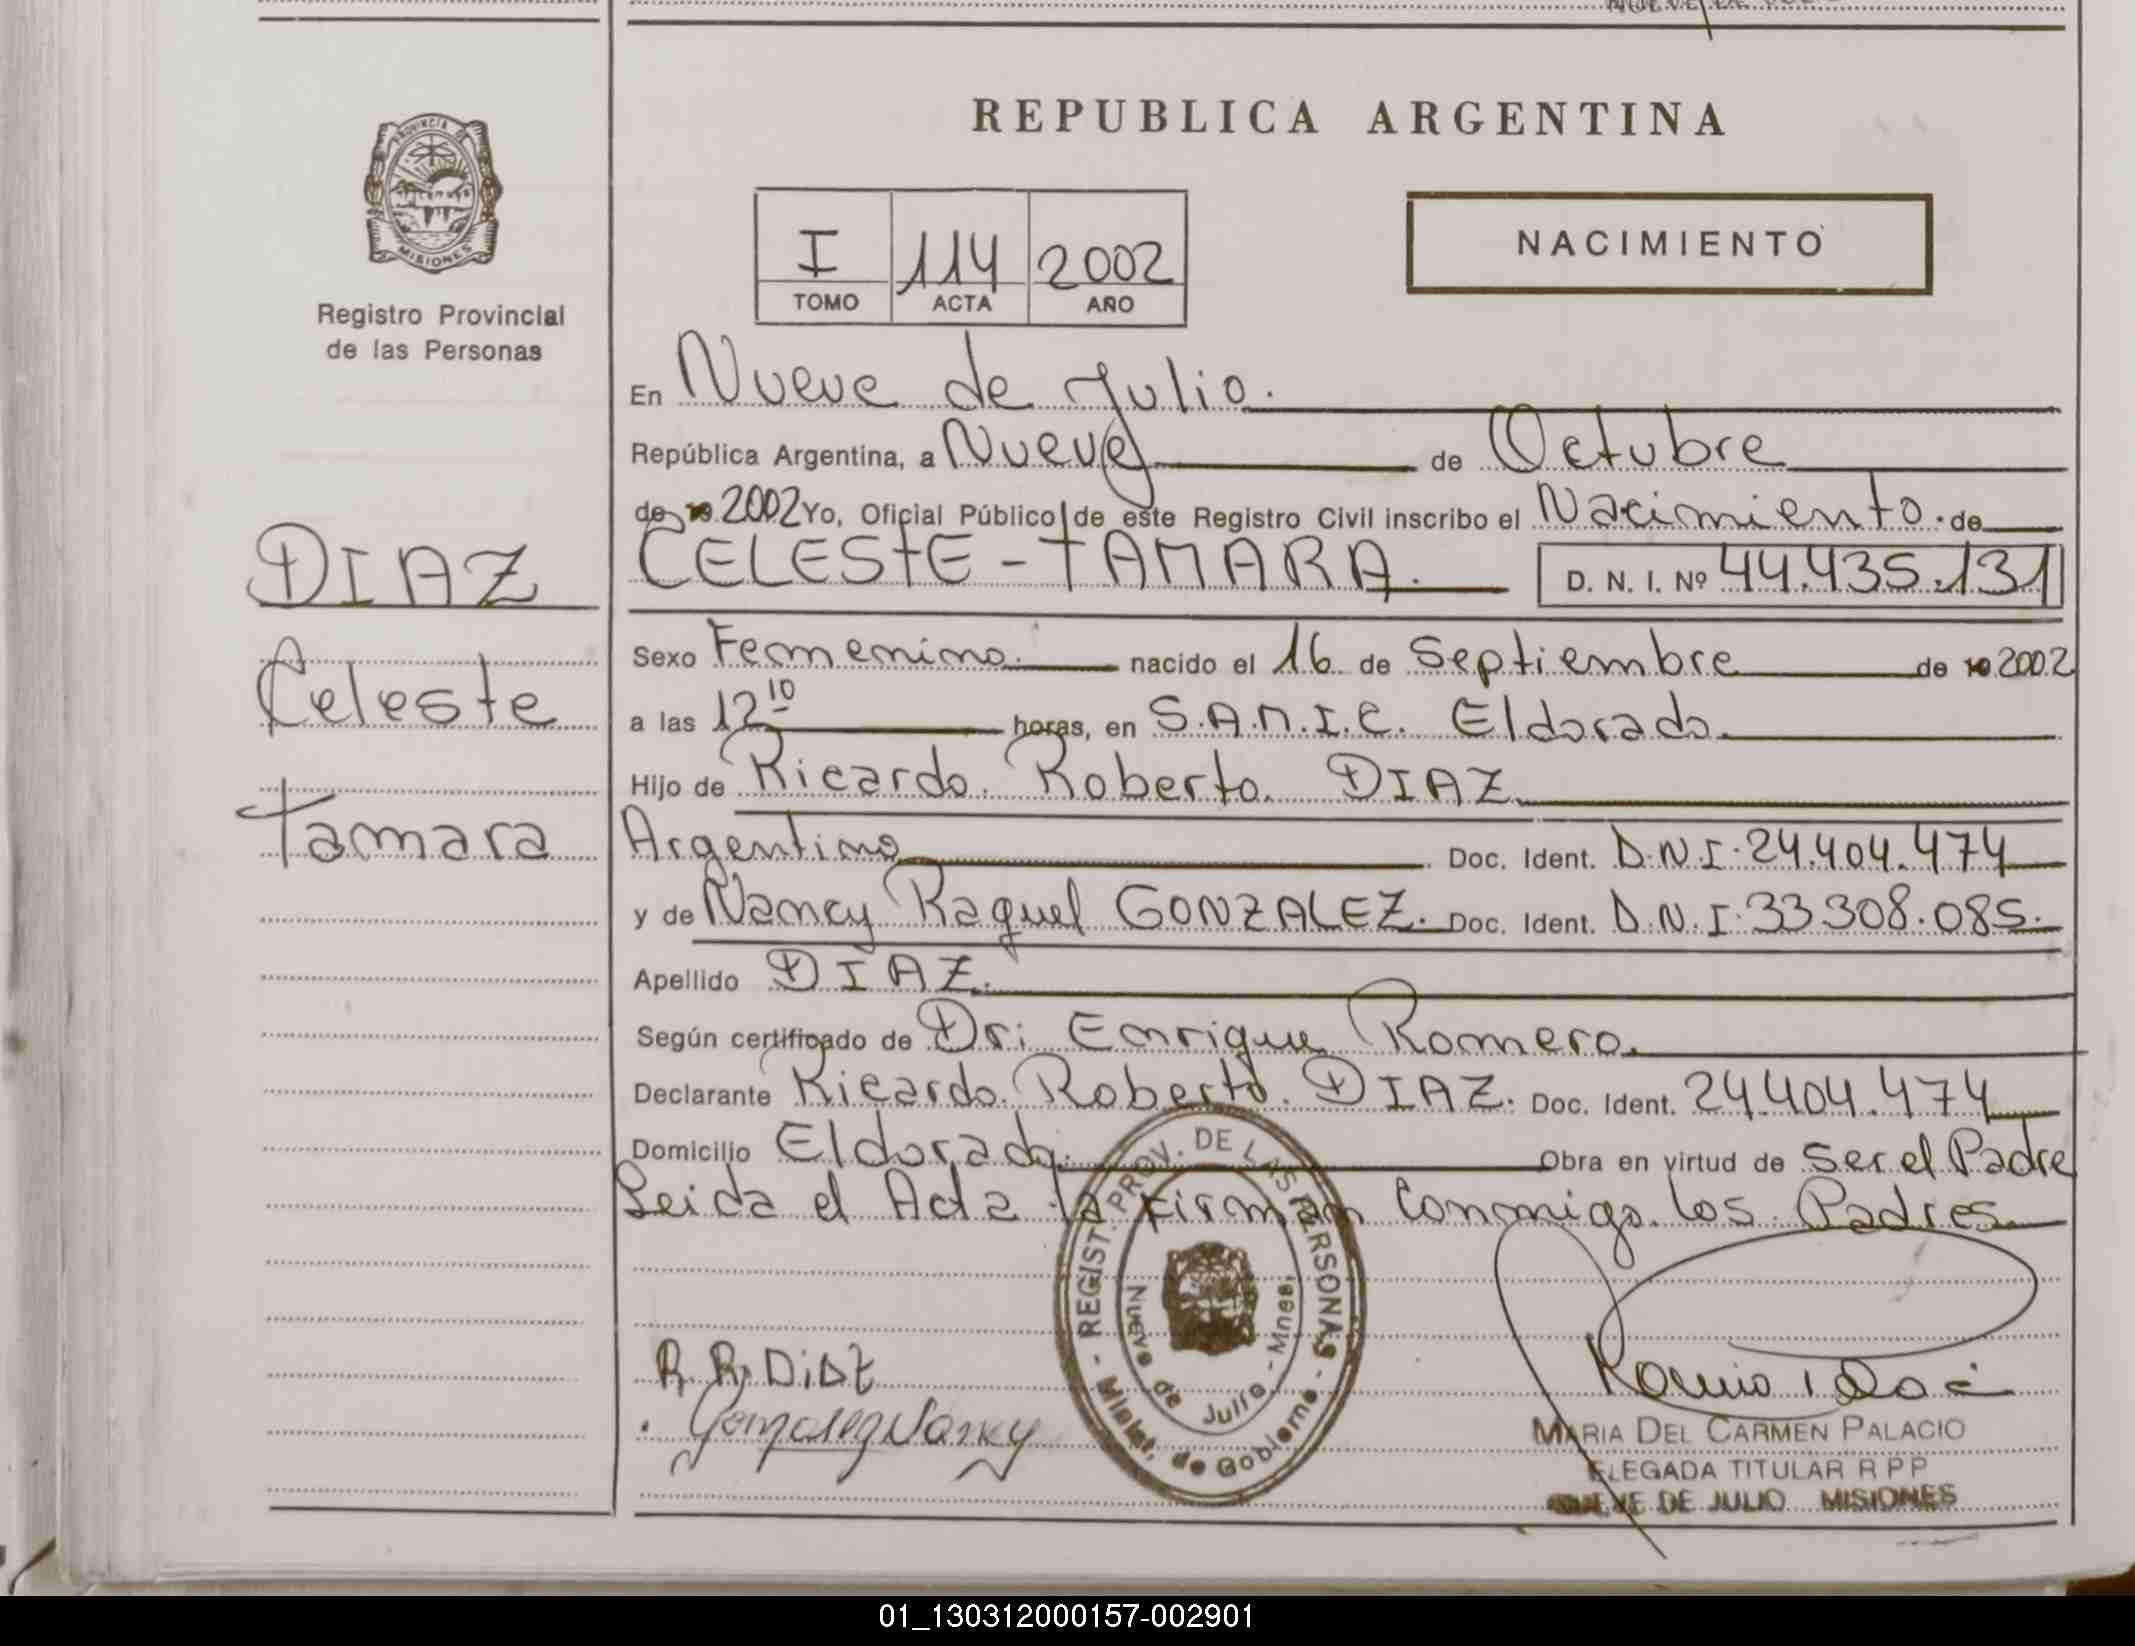 REPUBLICA ARGENTINA
PROVINCIA DE MISIONES
Registro Provincial
de las Personas
I 114 2002
TOMO ACTA AÑO
NACIMIENTO
DIAZ
Celeste
Tamara
En Nueve de Julio.
República Argentina, a Nueve de Octubre
de 19 2002 Yo, Oficial Público de este Registro Civil inscribo el Nacimiento. de
CELESTE - TAMARA. D. N. I. Nº 44.435.131
Sexo Femenino. nacido el 16 de Septiembre de 19 2002
a las 12 10 horas, en S.A.M.I.C. Eldorado
Hijo de Ricardo Roberto DIAZ
Argentino Doc. Ident. D.N.I. 24.404.474
y de Nancy Raquel GONZALEZ. Doc. Ident. D.N.I. 33.308.085.
Apellido DIAZ.
Según certificado de Dr: Enrique Romero.
Declarante Ricardo Roberto DIAZ. Doc. Ident. 24.404.474
Domicilio Eldorado. Obra en virtud de Ser el Padre
Leida el Acta la firman conmigo los Padres
REGIST. PROV. DE LAS PERSONAS - Minist. de Gobierno -
Nueve de Julio - Mnes.
R. R. DiAZ
Gonzalez Nancy
MARIA DEL CARMEN PALACIO
DELEGADA TITULAR R P P
NUEVE DE JULIO MISIONES
01_130312000157-002901